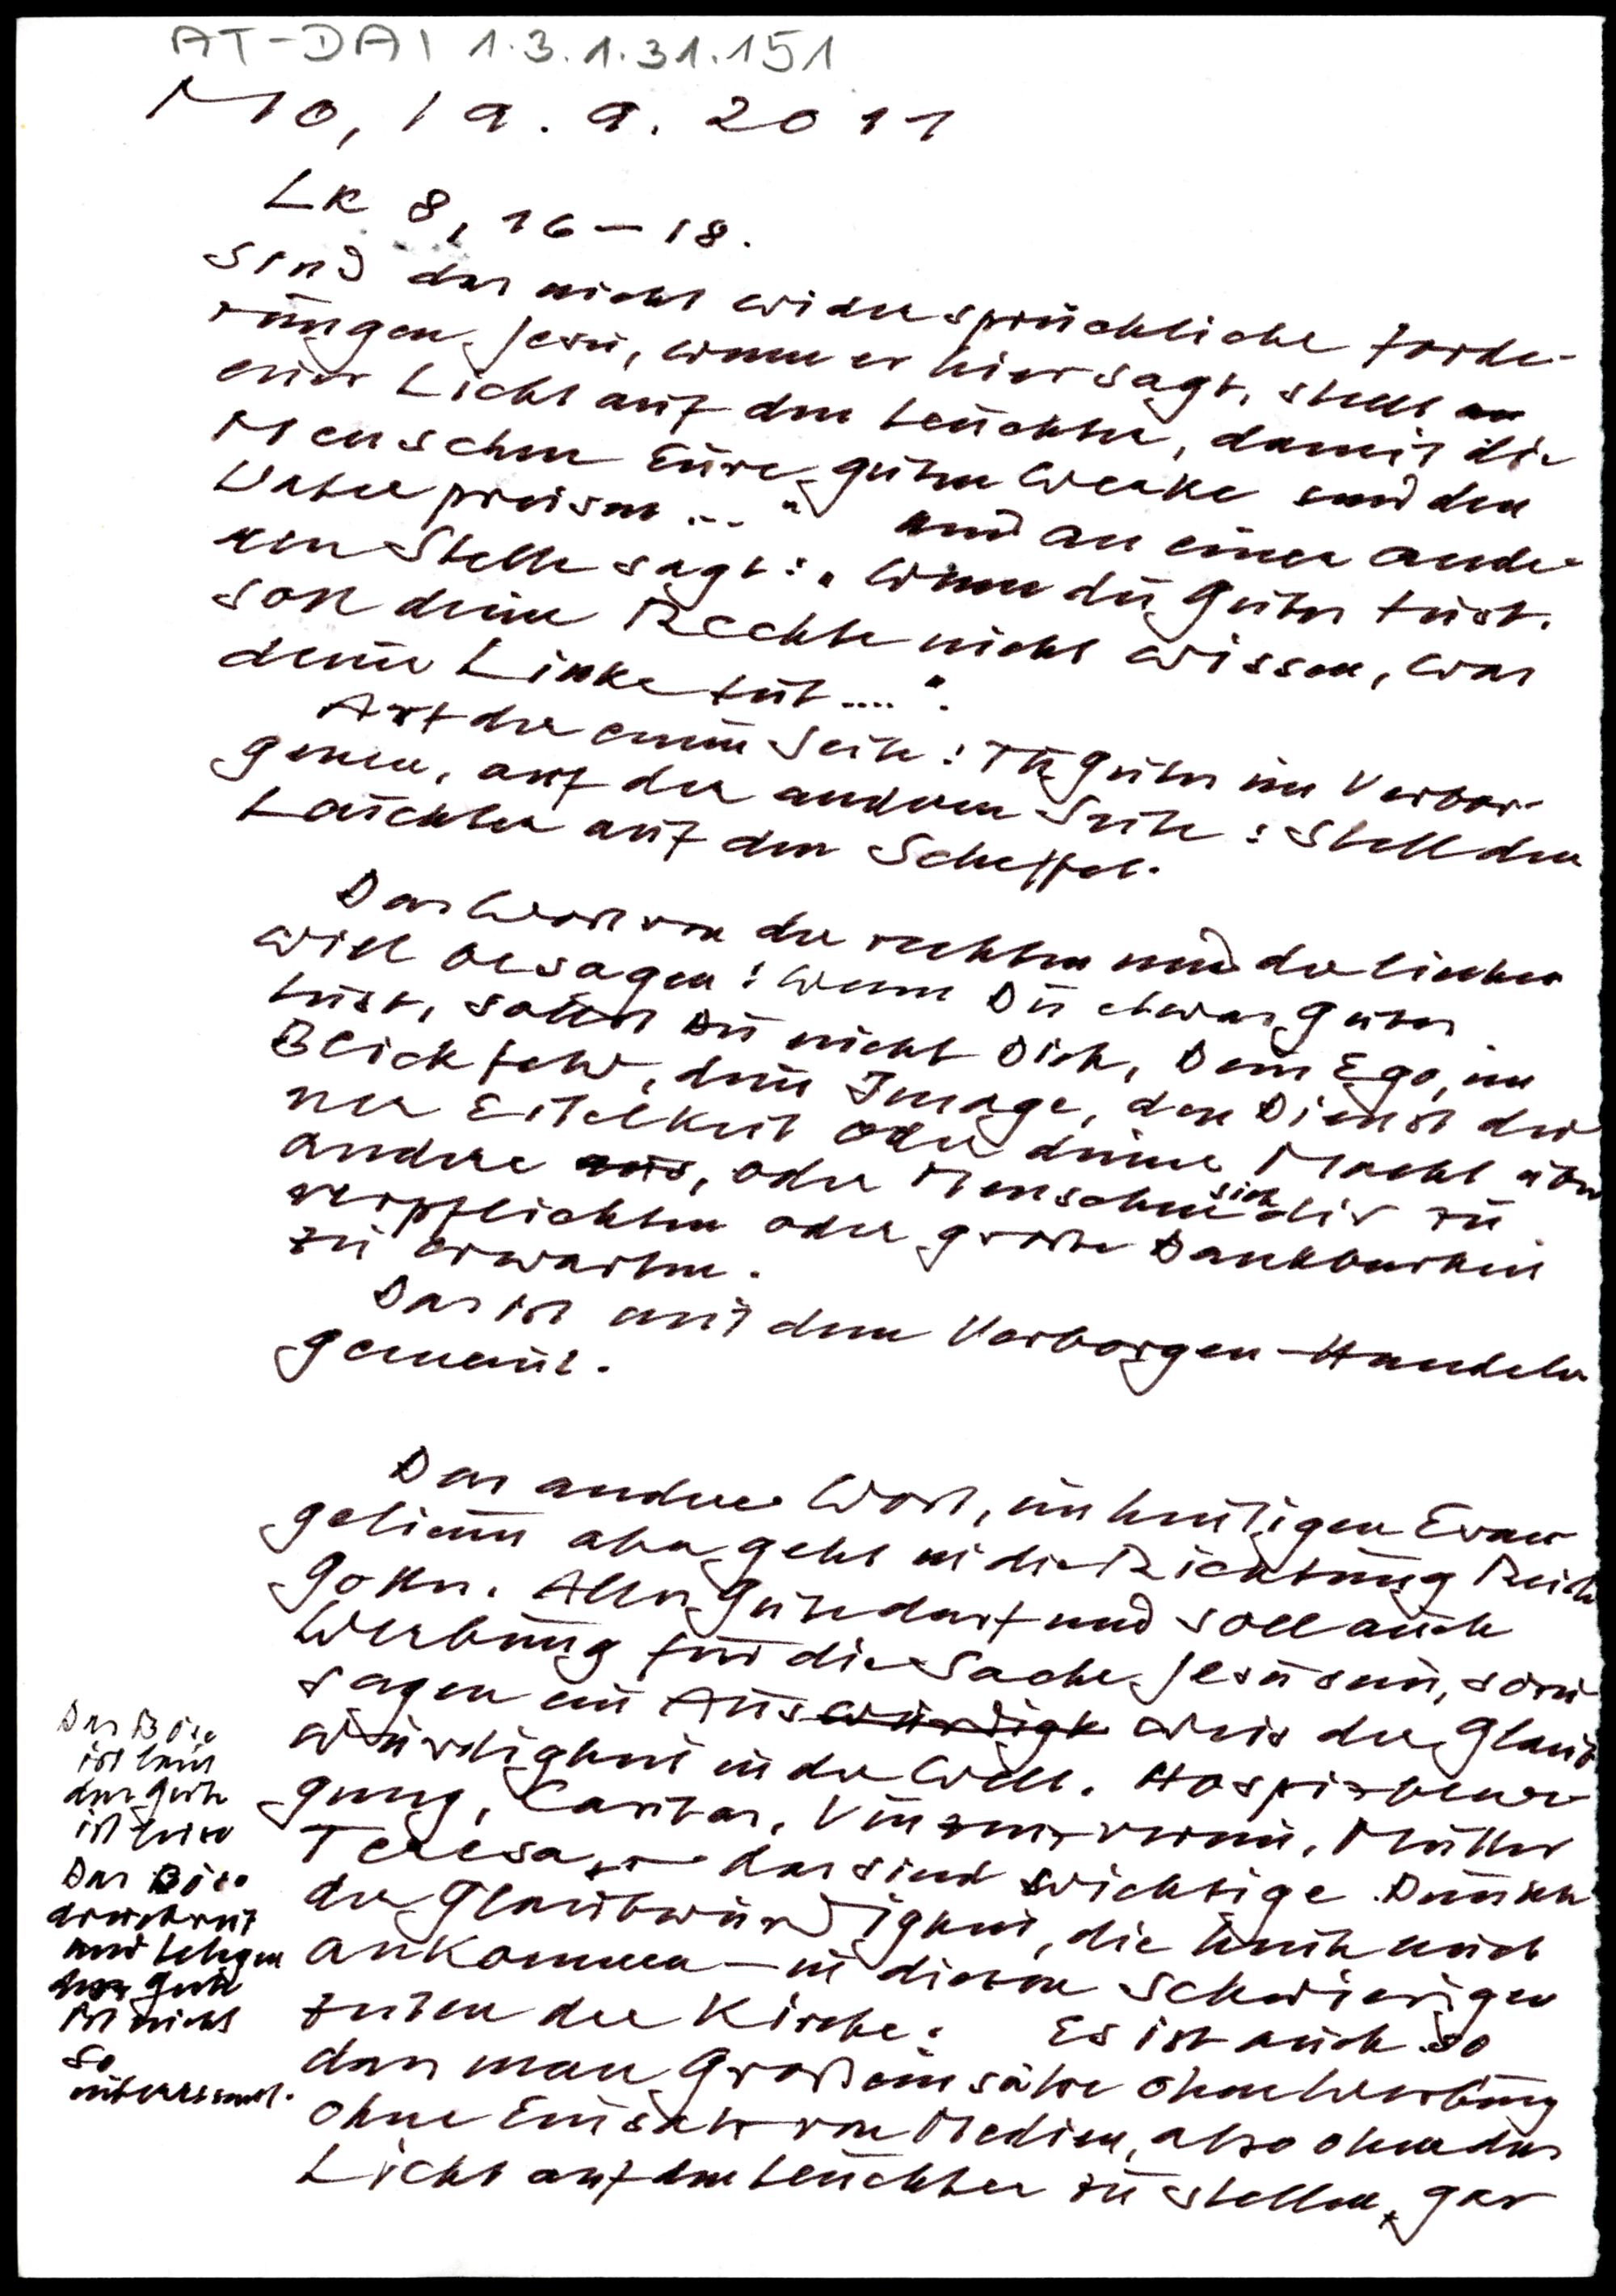 AT-DAI 1.3.1.31.151
Mo, 19.9.2011
Lk 8, 16-18.
Sind das nicht widersprüchliche Forde-
rungen Jesu, wenn er hier sagt, stellt
euer Licht auf den Leuchter, damit die
Menschen Eure guten Werke und den
Vater preisen..." und an einer ande-
ren Stelle sagt: "Wenn du Gutes tust,
soll deine Rechte nicht wissen, was
deine Linke tut....".
Auf der einen Seite: Tu Gutes im Verbor-
genen, auf der anderen Seite: Stell den
Leuchter auf den Scheffel.
Das Wort von der rechten und der linken
will besagen: Wenn Du etwas Gutes
tust, sollst Du nicht Dich, Dein Ego, im
Blickfeld, dein Image, den Dienst dei
ner Eitelkeit oder deiner Macht über
andere, oder Menschen sich dir zu
verpflichten oder große Dankbarkeit
zu erwarten.
Das ist mit dem Verborgen-Handeln
gemeint.
Das andere Wort, im heutigen Evan
gelium aber geht in die Richtung Reich
Gottes. Alles Gute darf und soll auch
Werbung für die Sache Jesu sein, sozu
sagen ein Auswürdigk weis der Glaub
würdigkeit in der Welt. Hospizbewe
gung, Caritas, Vinzenzverein, Mutter
Teresa, das sind wichtige Punkte
der Glaubwürdigkeit, die heute auch
ankommen – in diesen schwierigen
Zeiten der Kirche. Es ist auch so
dass man Großeinsätze ohne Werbung
ohne Einsatz von Medien, also ohne das
Licht auf den Leuchter zu stellen, gar
Das Böse
ist laut
das Gute
ist leise
Das Böse
drischt auf
und
das Gute
ist nicht
so
interessant.